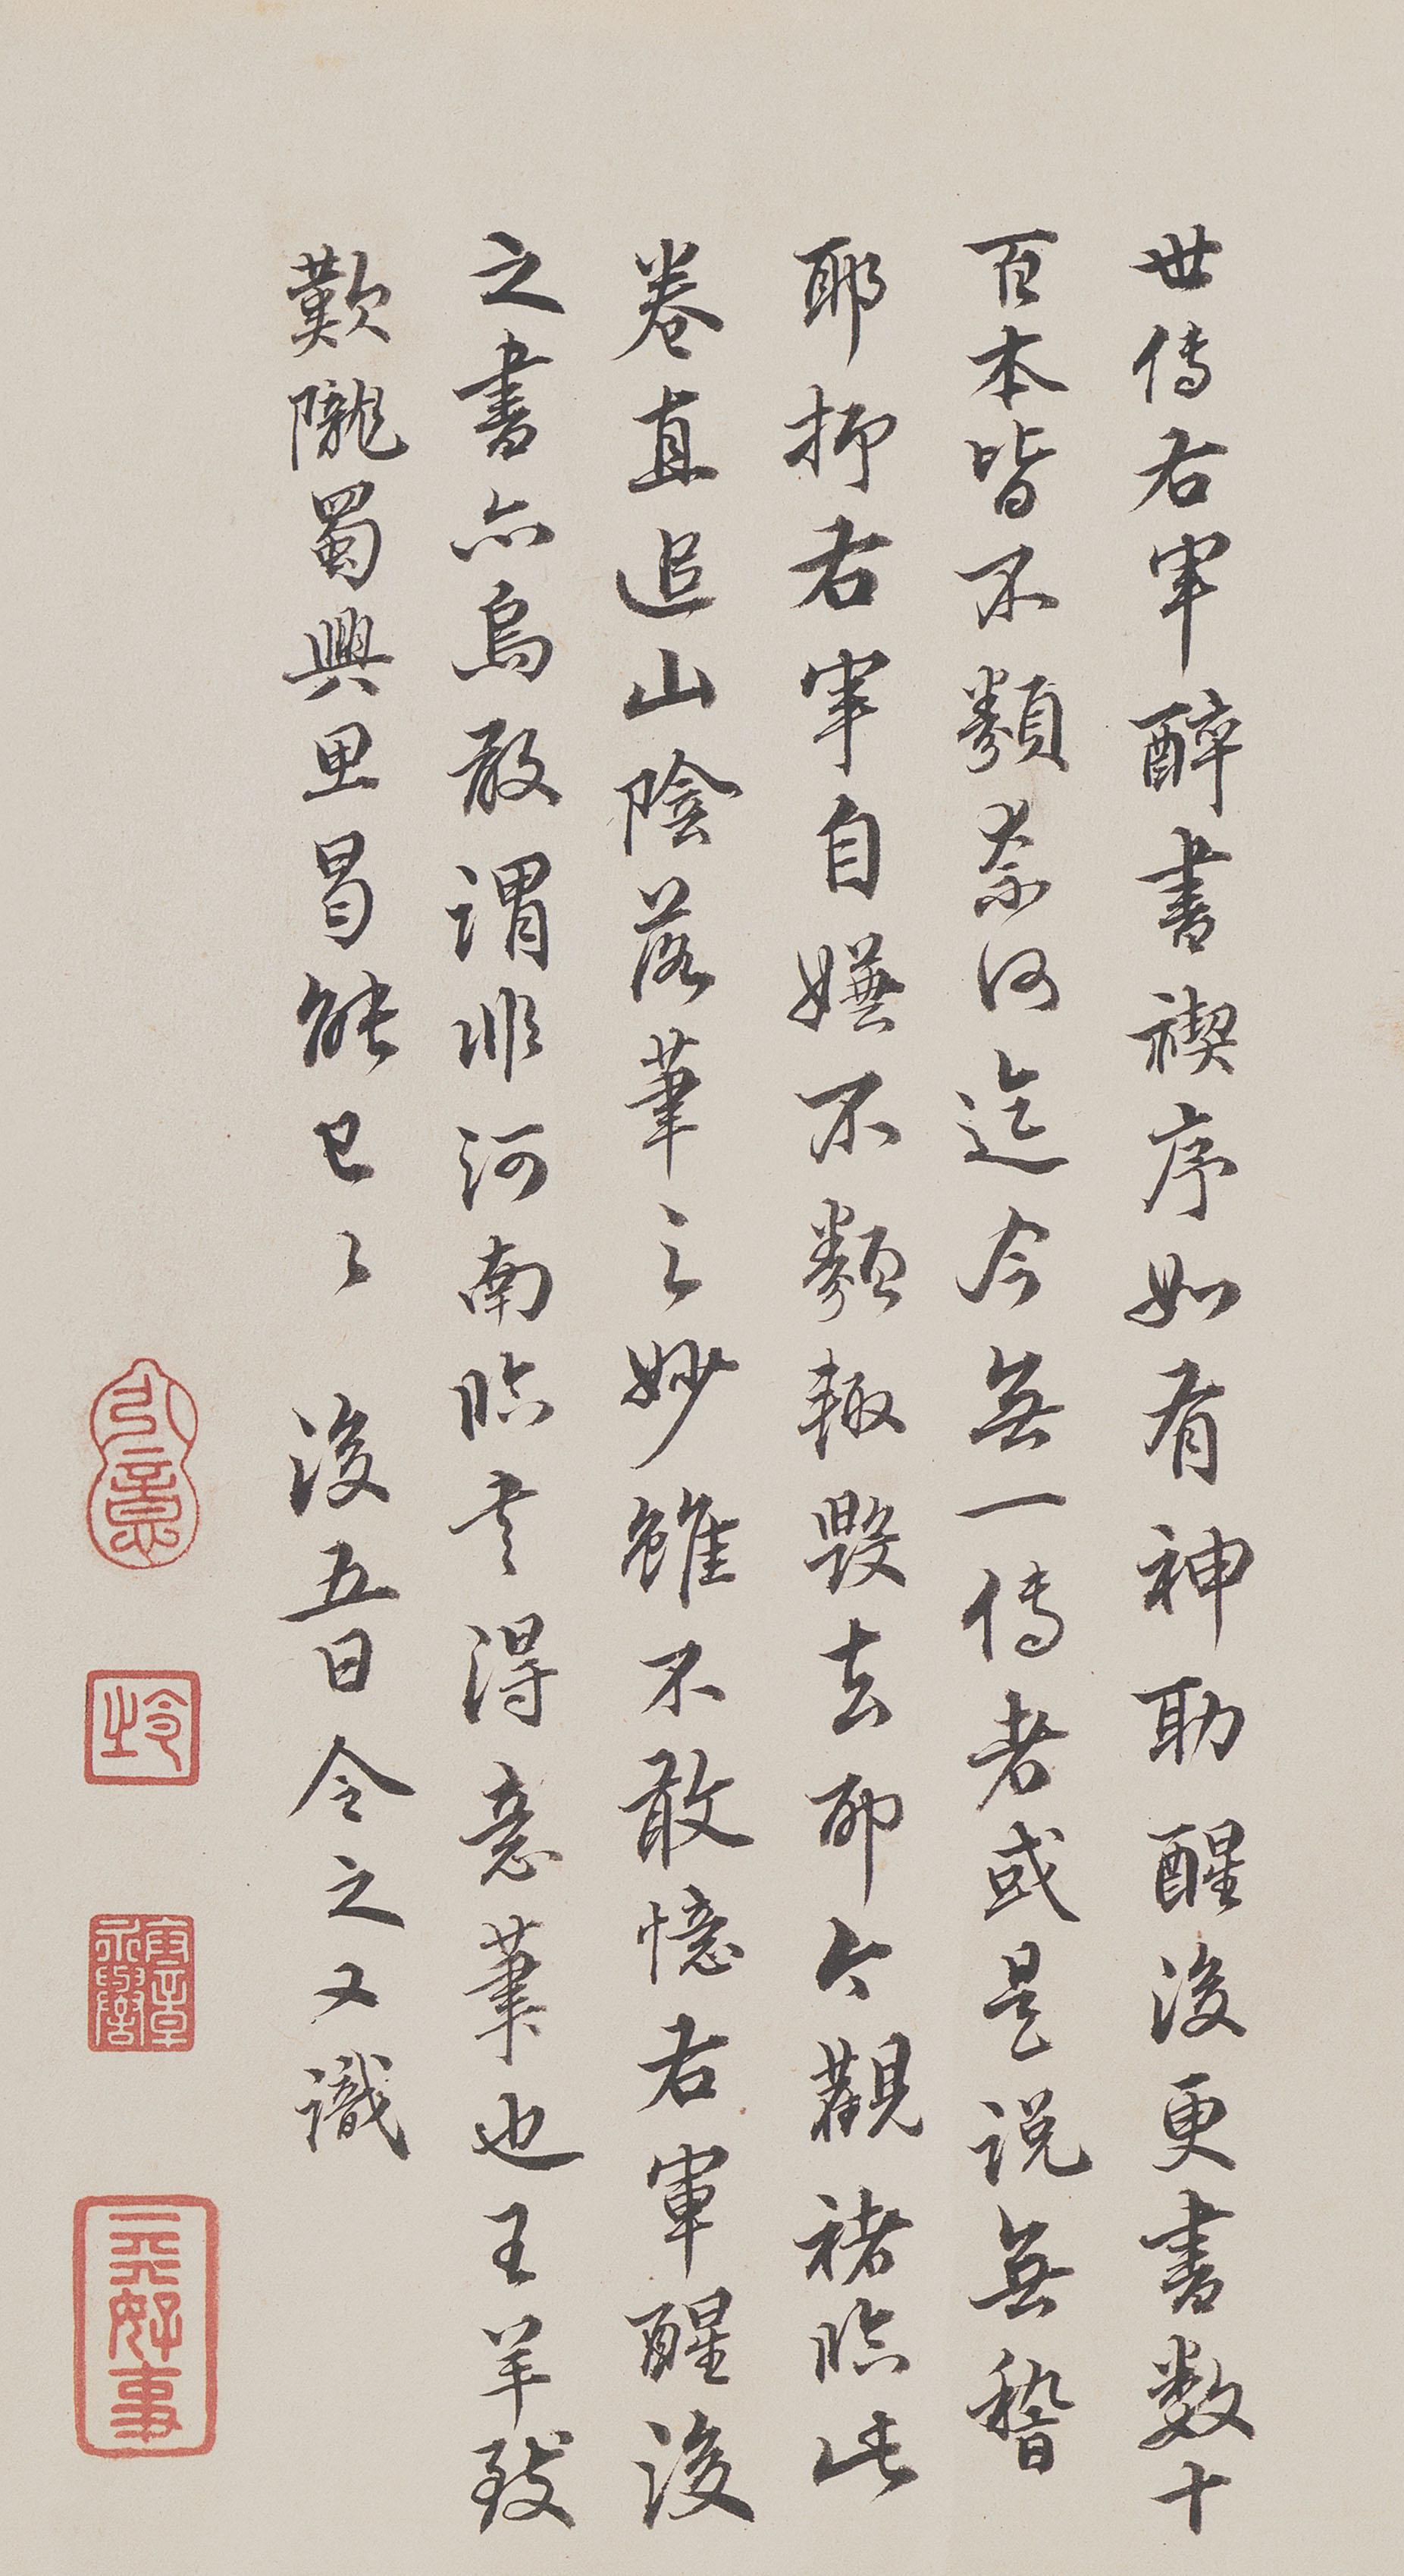 世傳右軍醉書禊序如有神助醒後更書数十
百本皆不類奈何迄今無一傳者或是說無稽
耶抑右軍自嫌不類輙毀去耶今觀褚臨此
卷直追山陰落筆之妙雖不敢憶右軍醒後
之書亦烏敢謂非河南臨書得意筆也王羊致
歎隴蜀興思曷能已〻 後五日令之又識